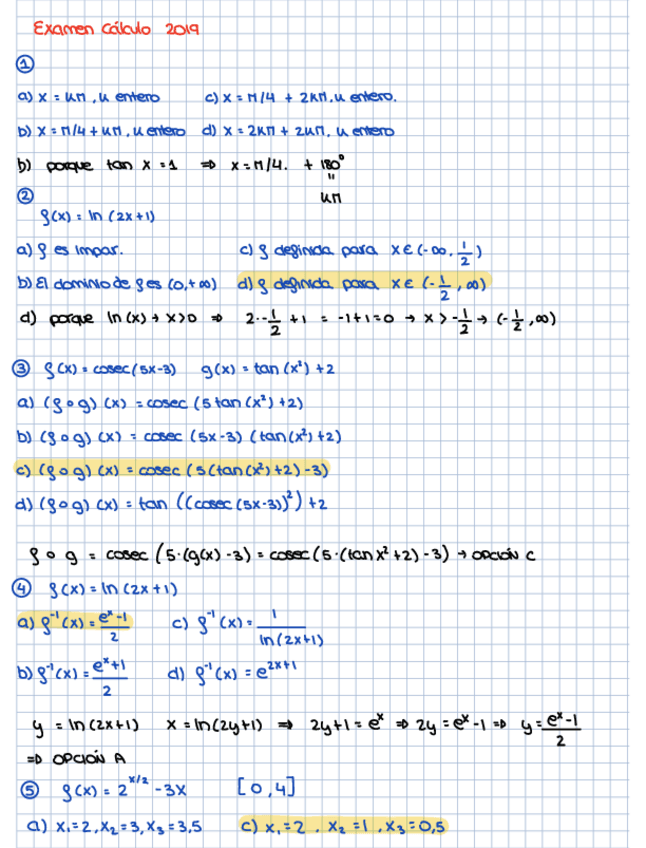 Examen Cálculo 2019
①
a) x = kπ, k entero c) x = π/4 + 2kπ, k entero.
b) x = π/4 + kπ, k entero d) x = 2kπ + 2kπ, k entero
b) porque tan x = 1 ⇒ x = π/4. + 180°
"
kπ
②
f(x) = ln (2x+1)
a) f es impar. c) f definida para x ∈ (-∞, 1/2)
b) El dominio de f es (0, +∞) d) f definida para x ∈ (-1/2, ∞)
d) porque ln(x) → x>0 ⇒ 2·-1/2 + 1 = -1+1=0 → x > -1/2 → (-1/2, ∞)
③ f(x) = cosec(5x-3) g(x) = tan(x²)+2
a) (f∘g)(x) = cosec (5tan(x²)+2)
b) (f∘g)(x) = cosec (5x-3)(tan(x²)+2)
c) (f∘g)(x) = cosec (5(tan(x²)+2)-3)
d) (f∘g)(x) = tan ((cosec(5x-3))²)+2
f∘g = cosec (5·(g(x)-3) = cosec(5·(tan x²+2)-3) → OPCIÓN C
④ f(x) = ln(2x+1)
a) f⁻¹(x) = eˣ-1/2 c) f⁻¹(x) = 1/ln(2x+1)
b) f⁻¹(x) = eˣ+1/2 d) f⁻¹(x) = e²ˣ⁺¹
y = ln(2x+1) x = ln(2y+1) ⇒ 2y+1 = eˣ ⇒ 2y = eˣ-1 ⇒ y = eˣ-1/2
⇒ OPCIÓN A
⑤ f(x) = 2^x/2 - 3x [0,4]
a) x₁=2, x₂=3, x₃=3,5 c) x₁=2, x₂=1, x₃=0,5